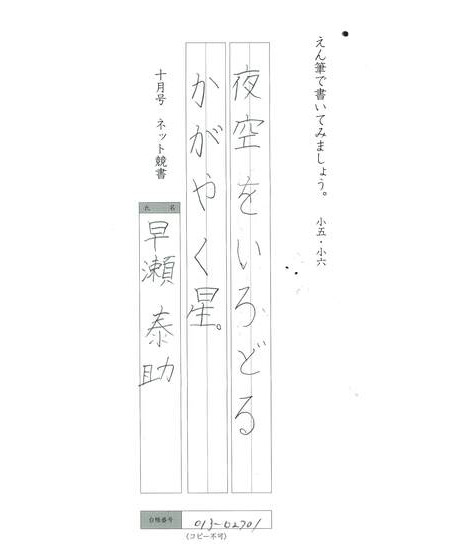 えん筆で書いてみましょう。 小五・小六
夜空をいろどる
かがやく星。
十月号 ネット競書
氏名
早瀬泰助
白峰番号
013-02701
(コピー不可)